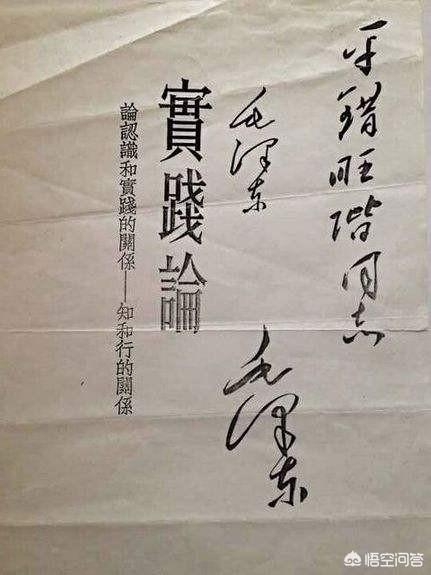 平错旺階同志
毛澤东
毛澤东
實踐論
論認識和實踐的關係——知和行的關係
悟空问答